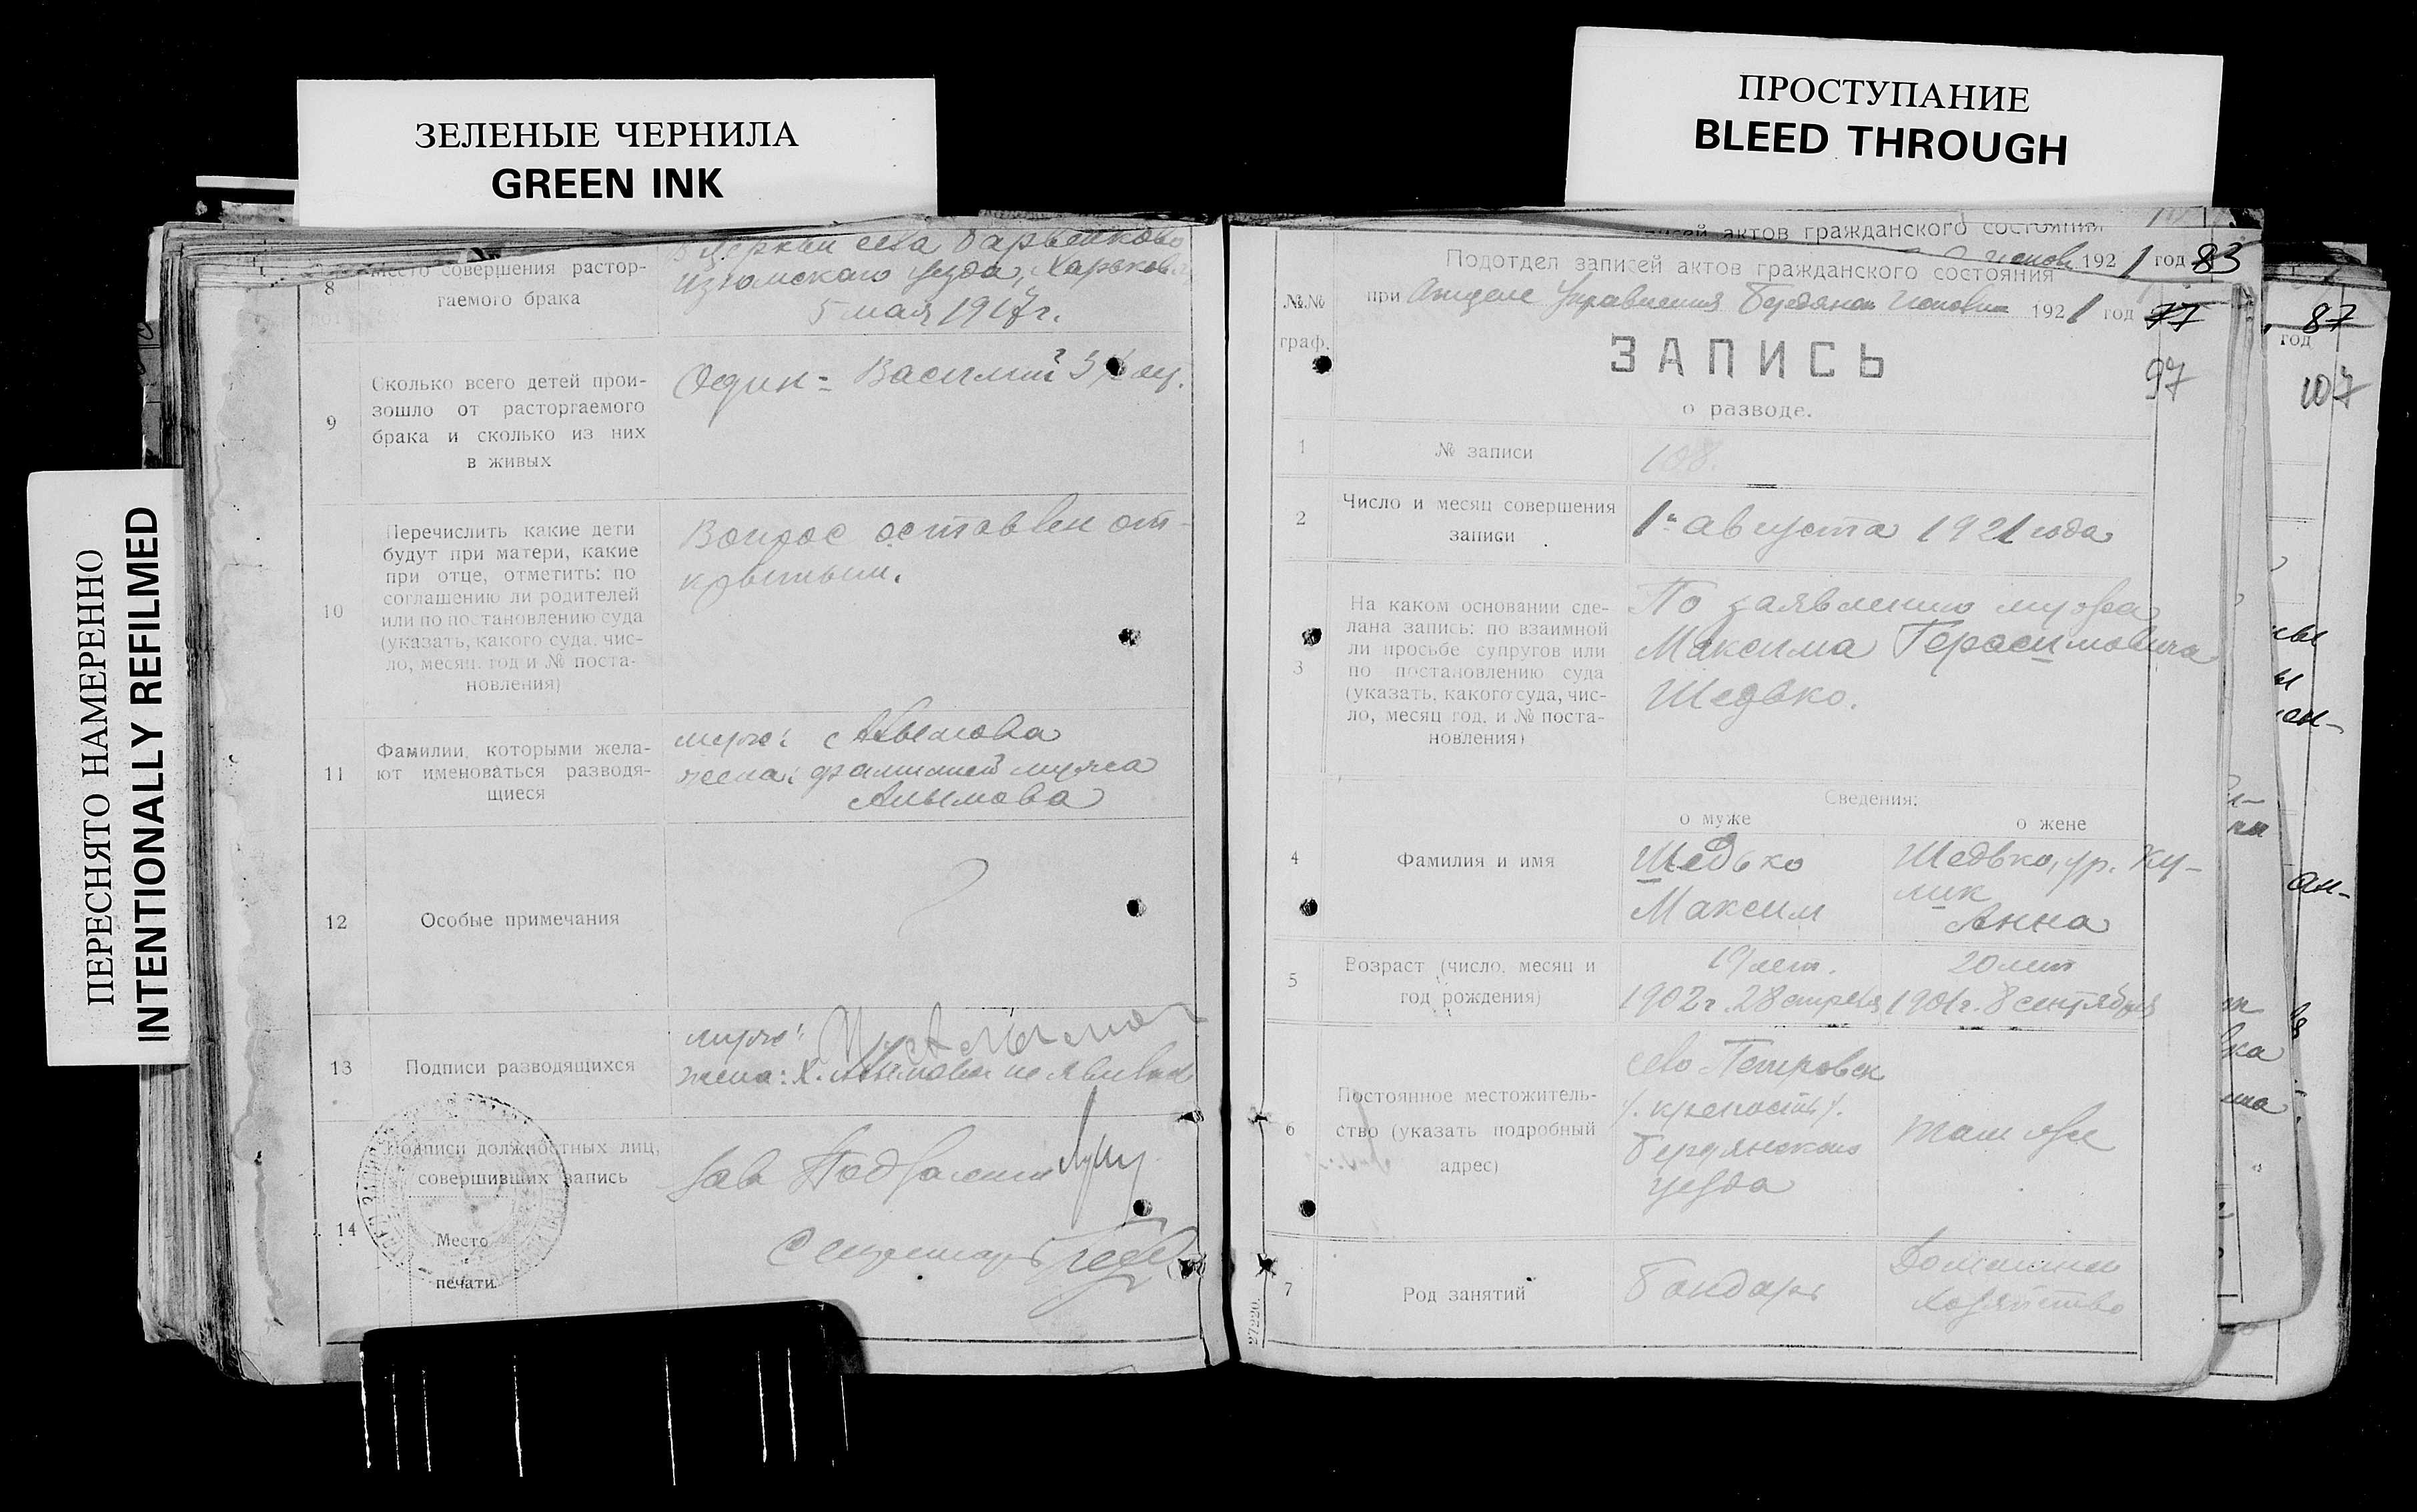 ЗЕЛЕНЫЕ ЧЕРНИЛА
GREEN INK
ПРОСТУПАНИЕ
BLEED THROUGH
ПЕРЕСНЯТО НАМЕРЕННО
INTENTIONALLY REFILMED
8
Место совершения растор-
гаемого брака
церкви села Барвенково
Изюмского уезда, Харьков
5 мая 1917 г.
9
Сколько всего детей прои-
зошло от расторгаемого
брака и сколько из них
в живых
Один = Василий 3
10
Перечислить какие дети
будут при матери, какие
при отце, отметить: по
соглашению ли родителей
или по постановлению суда
(указать, какого суда, чис-
ло, месяц, год и № поста-
новления)
Вопрос оставлен от-
крытым.
11
Фамилии, которыми жела-
ют именоваться разводя-
щиеся
муж:
жена: фамилией мужа
Алымова
12
Особые примечания
13
Подписи разводящихся
муж:
жена: Х. Алымова не
14
Подписи должностных лиц,
совершивших запись
Место
печати
Зав
Секретарь
актов гражданского состояния
192 1 год 83
Подотдел записей актов гражданского состояния
при Отделе Управления Бердянск 192 1 год 77
97
87
год
107
№№
граф.
ЗАПИСЬ
о разводе.
1
№ записи
108.
2
Число и месяц совершения
записи
1го августа 1921 года
3
На каком основании сде-
лана запись: по взаимной
ли просьбе супругов или
по постановлению суда
(указать, какого суда, чис-
ло, месяц год, и № поста-
новления)
По заявлению мужа
Максима Герасимовича
Шедько.
Сведения:
о муже
о жене
4
Фамилия и имя
Шедько
Максим
Шедько, ур. Ку-
лик
Анна
5
Возраст (число, месяц и
год рождения)
19 лет.
1902 г. 28 апреля
20 лет
1901 г. 8 сентября
6
Постоянное местожитель-
ство (указать подробный
адрес)
село Петровск
/. крепость /.
Бердянского
уезда
там же
7
Род занятий
Бондарь
Домашнее
хозяйство
27220.